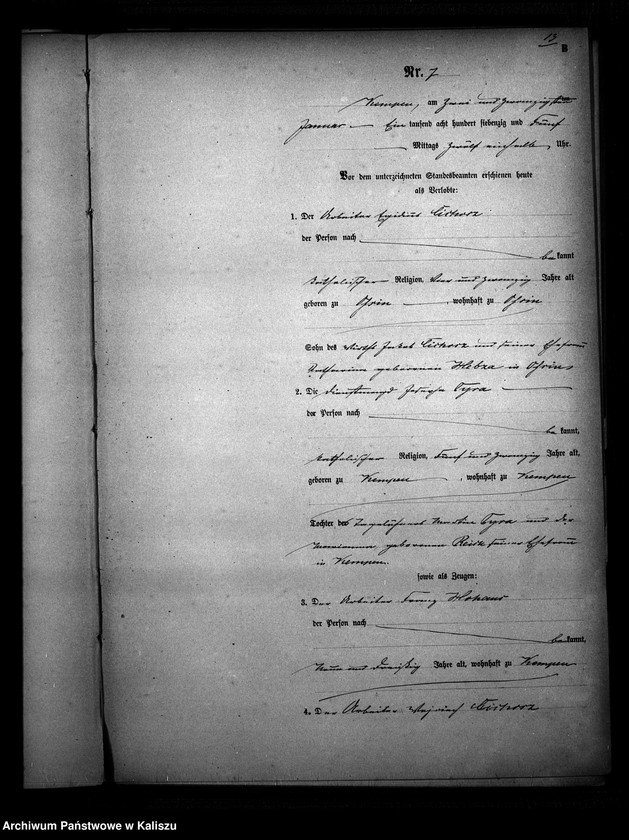 13
B
Nr. 7
Kempen, am zwei und zwanzigsten
Januar Ein tausend acht hundert siebenzig und fünf
Mittags zwölf einhalb Uhr.
Vor dem unterzeichneten Standesbeamten erschienen heute
als Verlobte:
1. Der Arbeiter Egidius
der Person nach
bekannt
katholischer Religion, vier und zwanzig Jahre alt
geboren zu , wohnhaft zu
Sohn des Wirths Jakob und seiner Ehefrau
Katharina geborenen in
2. Die Dienstmagd Josepha Tyra
der Person nach
bekannt,
katholischer Religion, fünf und zwanzig Jahre alt,
geboren zu Kempen , wohnhaft zu Kempen
Tochter des Tagelöhners Martin Tyra und der
Marianna geborenen seiner Ehefrau
in Kempen.
sowie als Zeugen:
3. Der Arbeiter Franz
der Person nach
bekannt,
neun und dreißig Jahre alt, wohnhaft zu Kempen
4. Der Arbeiter
Archiwum Państwowe w Kaliszu